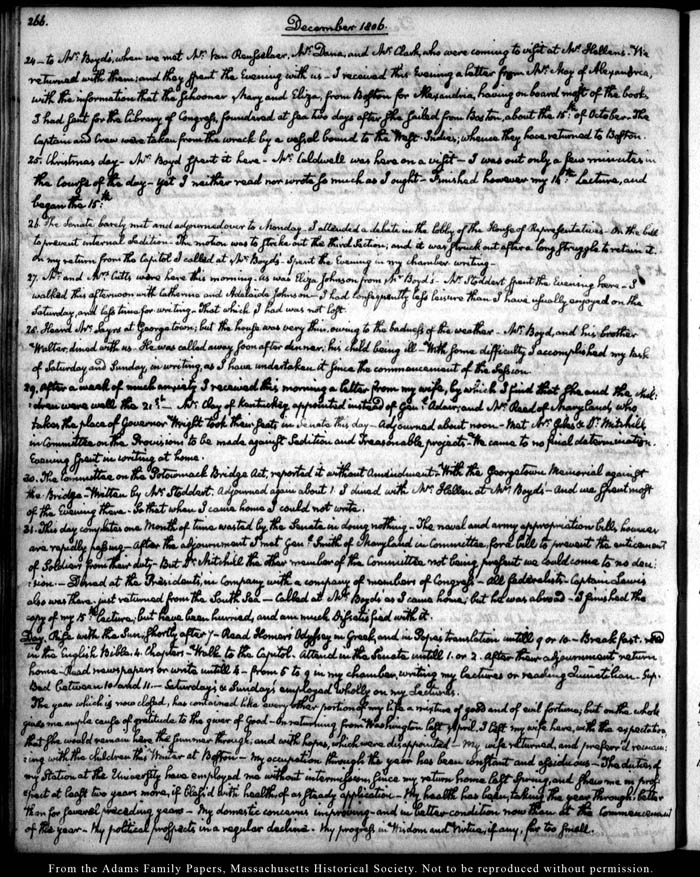 266.
December 1806.
24 - to Mr. Boyd's, when we met Mr. Van Rensselaer, Mr. Dana, and Mr. Clark, who were coming to visit at Mr. Hellen's. We
returned with them; and they spent the Evening with us - I received this Evening a letter from Mr. May of Alexandria,
with the information that the schooner Mary and Eliza, from Boston for Alexandria, having on board most of the books
I had sent for the Library of Congress, foundered at sea two days after she sailed from Boston, about the 15th. of October. The
Captain and Crew were taken from the wreck by a vessel bound to the West-Indies; whence they have returned to Boston.
25. Christmas day - Mr. Boyd spent it here - Mr. Caldwell was here on a visit - I was out only a few minutes in
the Course of the day - yet I neither read nor wrote so much as I ought - Finished however my 14th. Lecture, and
began the 15th.
26. The Senate barely met and adjourned over to Monday - I attended a debate in the lobby of the House of Representatives - On the bill
to prevent internal Sedition - The motion was to strike out the third Section; and it was struck out after a long struggle to retain it.
On my return from the Capitol I called at Mr. Boyd's - Spent the Evening in my chamber writing -
27. Mr. and Mrs. Cutts were here this morning - as was Eliza Johnson from Mr. Boyd's - Mr. Stoddert spent the Evening here - I
walked this afternoon with Catherine and Adelaide Johnson - I had consequently less leisure than I have usually enjoyed on the
Saturday, and less time for writing - That which I had was not lost.
28. Heard Mr. Sayrs at Georgetown; but the house was very thin, owing to the badness of the weather - Mr. Boyd, and his brother
Walter, dined with us - He was called away soon after dinner; his child being ill - With some difficulty I accomplished my task
of Saturday and Sunday, on writing, as I have undertaken it since the commencement of the Session.
29. After a week of much anxiety I received this morning a letter from my wife, by which I find that she and the chil:
:dren were well the 21st - Mr. Clay of Kentucky, appointed instead of Genl. Adair, and Mr. Reed of Maryland, who
takes the place of Governor Wright took their seats in Senate this day - Adjourned about noon - Met Mr. Giles & Dr. Mitchill
in Committee on the Provisions to be made against Sedition and Treasonable projects - We came to no final determination.
Evening spent in writing at home.
30. The Committee on the Potowmack Bridge Act, reported it without Amendment - With the Georgetown Memorial against
the Bridge - Written by Mr. Stoddert. Adjourned again about 1. I dined with Mr. Hellen at Mr. Boyd's - And we spent most
of the Evening there - So that when I came home I could not write.
31. This day completes one Month of time wasted by the Senate in doing nothing - The naval and army appropriation bills, however
are rapidly passing - After the adjournment I met Genl. Smith of Maryland in Committee, for a bill to prevent the enticement
of Soldiers from their duty - But Dr. Mitchill the other member of the Committee not being present we could come to no deci:
:sion. - Dined at the President's, in Company with a company of members of Congress - all federalists - Captain Lewis
also was there, just returned from the South Sea - Called at Mr. Boyd's as I came home; but he was abroad - I finished the
copy of my 15th. lecture; but have been hurried, and am much dissatisfied with it.
Day. Rise with the Sun, shortly after 7 - Read Homer's Odyssey in Greek, and in Pope's translation untill 9 or 10 - Breakfast. read
in the English Bible 4. Chapters - Walk to the Capitol. Attend in the Senate untill 1. or 2. After their adjournment return
home - Read newspapers or write untill 4 - from 5 to 9 in my chamber, writing my lectures or reading Quinctilian - Sup.
Bed between 10 and 11. - Saturdays & Sundays employed wholly on my lectures.
The year which is now closed, has contained like every other portion of my life a mixture of good and of evil fortune; but on the whole
gives me ample cause of gratitude to the giver of Good - On returning from Washington last April, I left my wife here, with the expectation
that she would remain here the Summer through; and with hopes, which were disappointed - My wife returned, and preferr'd remain:
:ing with the children this Winter at Boston - My occupation through the year has been constant and assiduous - The duties of
my Station at the University have employed me without intermission, since my return home last Spring, and shew me in pros:
:pect at least two years more, if bless'd with health, of as steady application - My health has been, taking the year through, better
than for several preceding years - My domestic concerns improving - and in better condition now than at the Commencement
of the year - My political prospects in a regular decline - My progress in Wisdom and Virtue, if any, far too small.
From the Adams Family Papers, Massachusetts Historical Society. Not to be reproduced without permission.